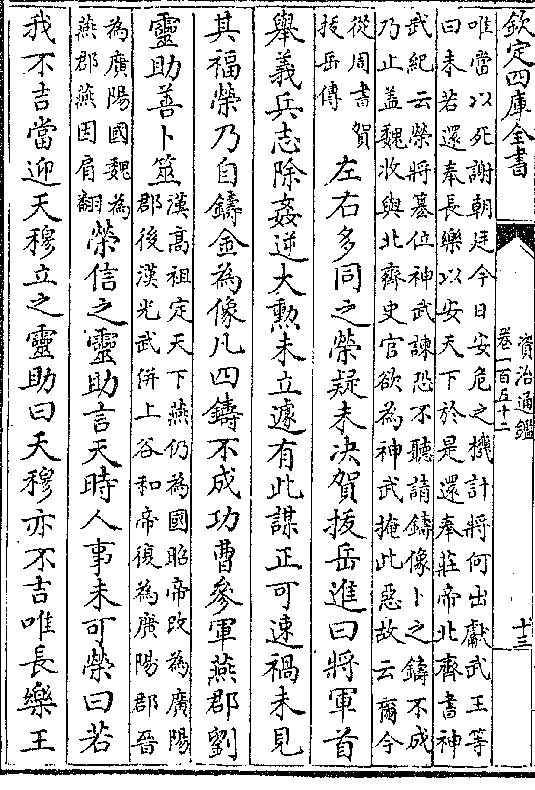 欽定四庫全書
資治通鑑
卷一百五十二
十三
唯當以死謝朝廷今日安危之機計將何出獻武王等
曰未若還奉長樂以安天下於是還奉莊帝北齊書神
武紀云榮將篡位神武諫恐不聽請鑄像卜之鑄不成
乃止蓋魏收與北齊史官欲為神武掩此惡故云爾今
從周書賀
拔岳傳
左右多同之榮疑未決賀拔岳進曰將軍首
舉義兵志除姦逆大勲未立遽有此謀正可速禍未見
其福榮乃自鑄金為像凡四鑄不成功曹參軍燕郡劉
靈助善卜筮
漢高祖定天下燕仍為國昭帝改為廣陽
郡後漢光武併上谷和帝復為廣陽郡晉
為廣陽國魏為
燕郡燕因肩翻
榮信之靈助言天時人事未可榮曰若
我不吉當迎天穆立之靈助曰天穆亦不吉唯長樂王